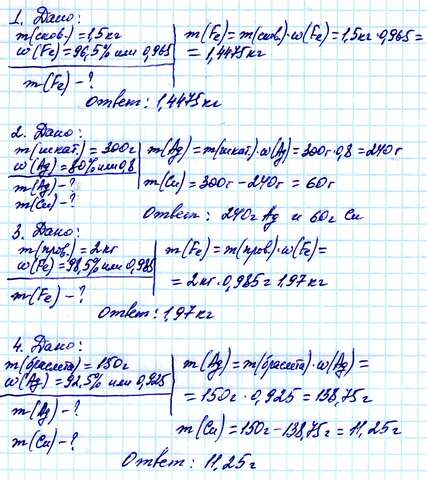 1. Дано:
m(сков.) = 1,5 кг
w(Fe) = 96,5% или 0,965
m(Fe) - ?
m(Fe) = m(сков.)·w(Fe) = 1,5кг·0,965 =
= 1,4475кг
Ответ: 1,4475кг
2. Дано:
m(шкат.) = 300г
w(Ag) = 80% или 0,8
m(Ag) - ?
m(Cu) - ?
m(Ag) = m(шкат.)·w(Ag) = 300г·0,8 = 240г
m(Cu) = 300г - 240г = 60г
Ответ: 240г Ag и 60г Cu
3. Дано:
m(пров.) = 2кг
w(Fe) = 98,5% или 0,985
m(Fe) - ?
m(Fe) = m(пров.)·w(Fe) =
= 2кг·0,985г 1,97кг
Ответ: 1,97кг
4. Дано:
m(браслета) = 150г
w(Ag) = 92,5% или 0,925
m(Ag) - ?
m(Cu) - ?
m(Ag) = m(браслета)·w(Ag) =
= 150г·0,925 = 138,75г
m(Cu) = 150г - 138,75г = 11,25г
Ответ: 11,25г